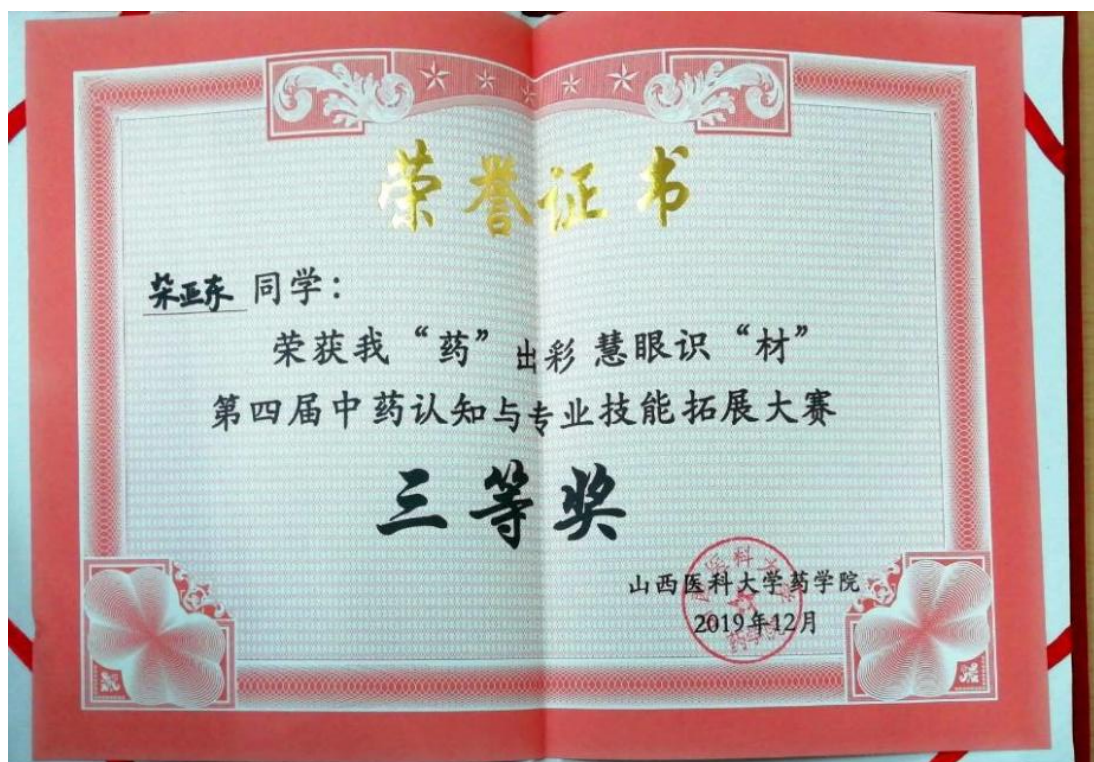 荣誉证书
柴亚东 同学：
荣获我“药”出彩 慧眼识“材”
第四届中药认知与专业技能拓展大赛
三等奖
山西医科大学药学院
2019年12月